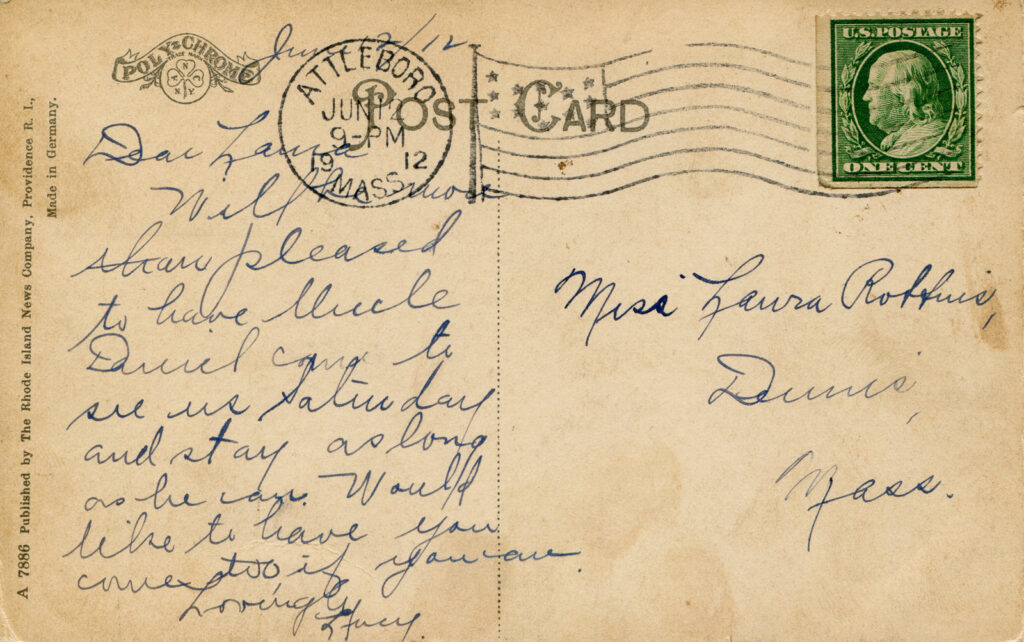 POLY-CHROME
TRADE MARK
June 12/12
POST CARD
ATTLEBORO
JUN 12
9-PM
1912
MASS.
U.S. POSTAGE
ONE CENT
Dear Laura
Will be more
than pleased
to have Uncle
Daniel come to
see us Saturday
and stay as long
as he can. Would
like to have you
come too if you can.
Lovingly
Miss Laura Robbins,
Dennis,
Mass.
A 7886 Published by The Rhode Island News Company, Providence R. I.,
Made in Germany.